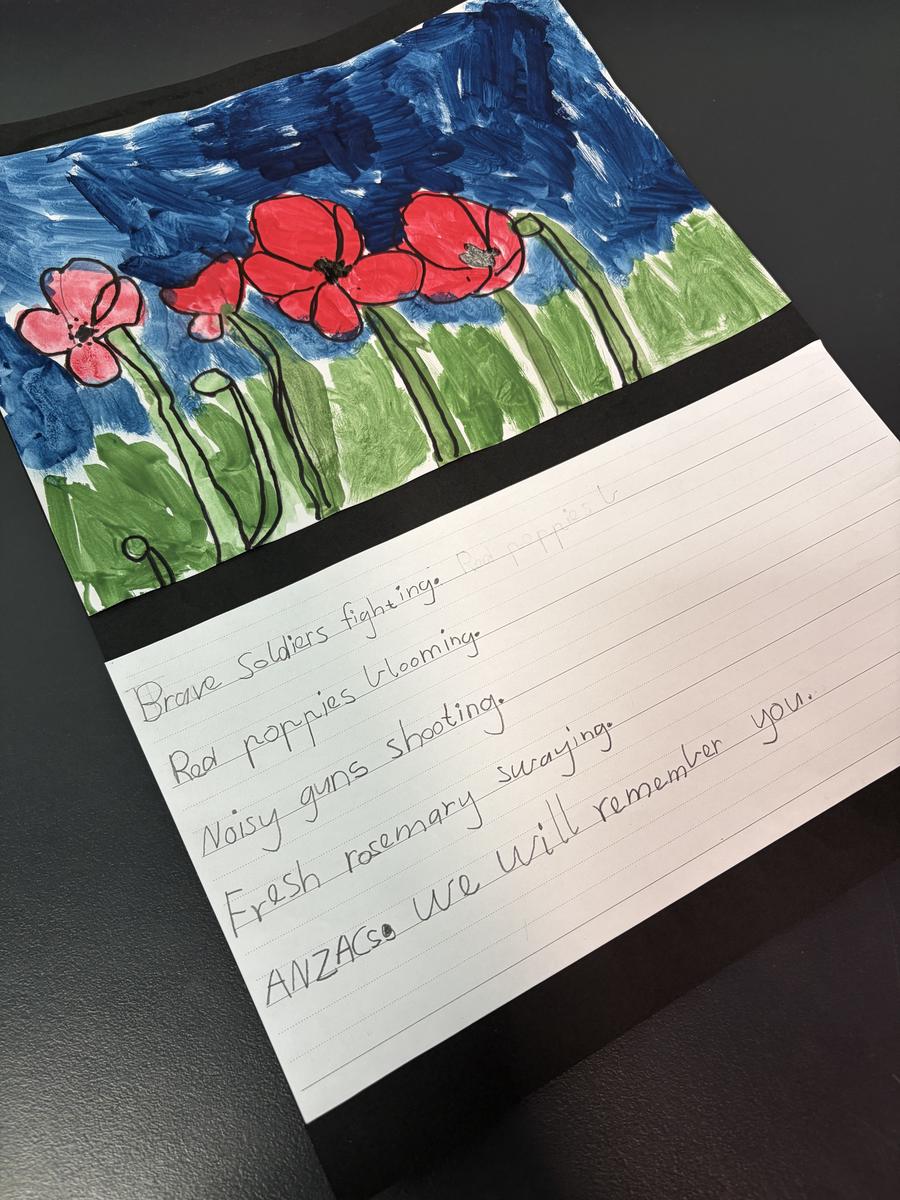 Brave Soldiers fighting. Red poppies b
Red poppies blooming.
Noisy guns shooting.
Fresh rosemary swaying.
ANZACs. We will remember you.